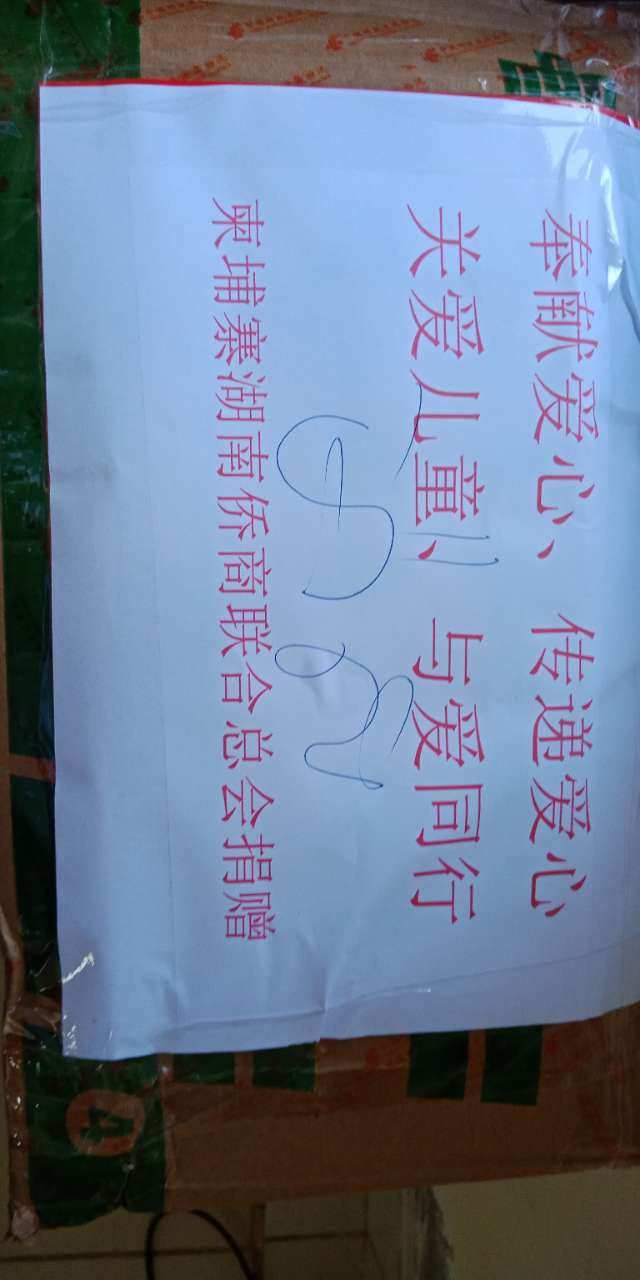 奉献爱心、传递爱心
关爱儿童、与爱同行
柬埔寨湖南侨商联合总会捐赠
4